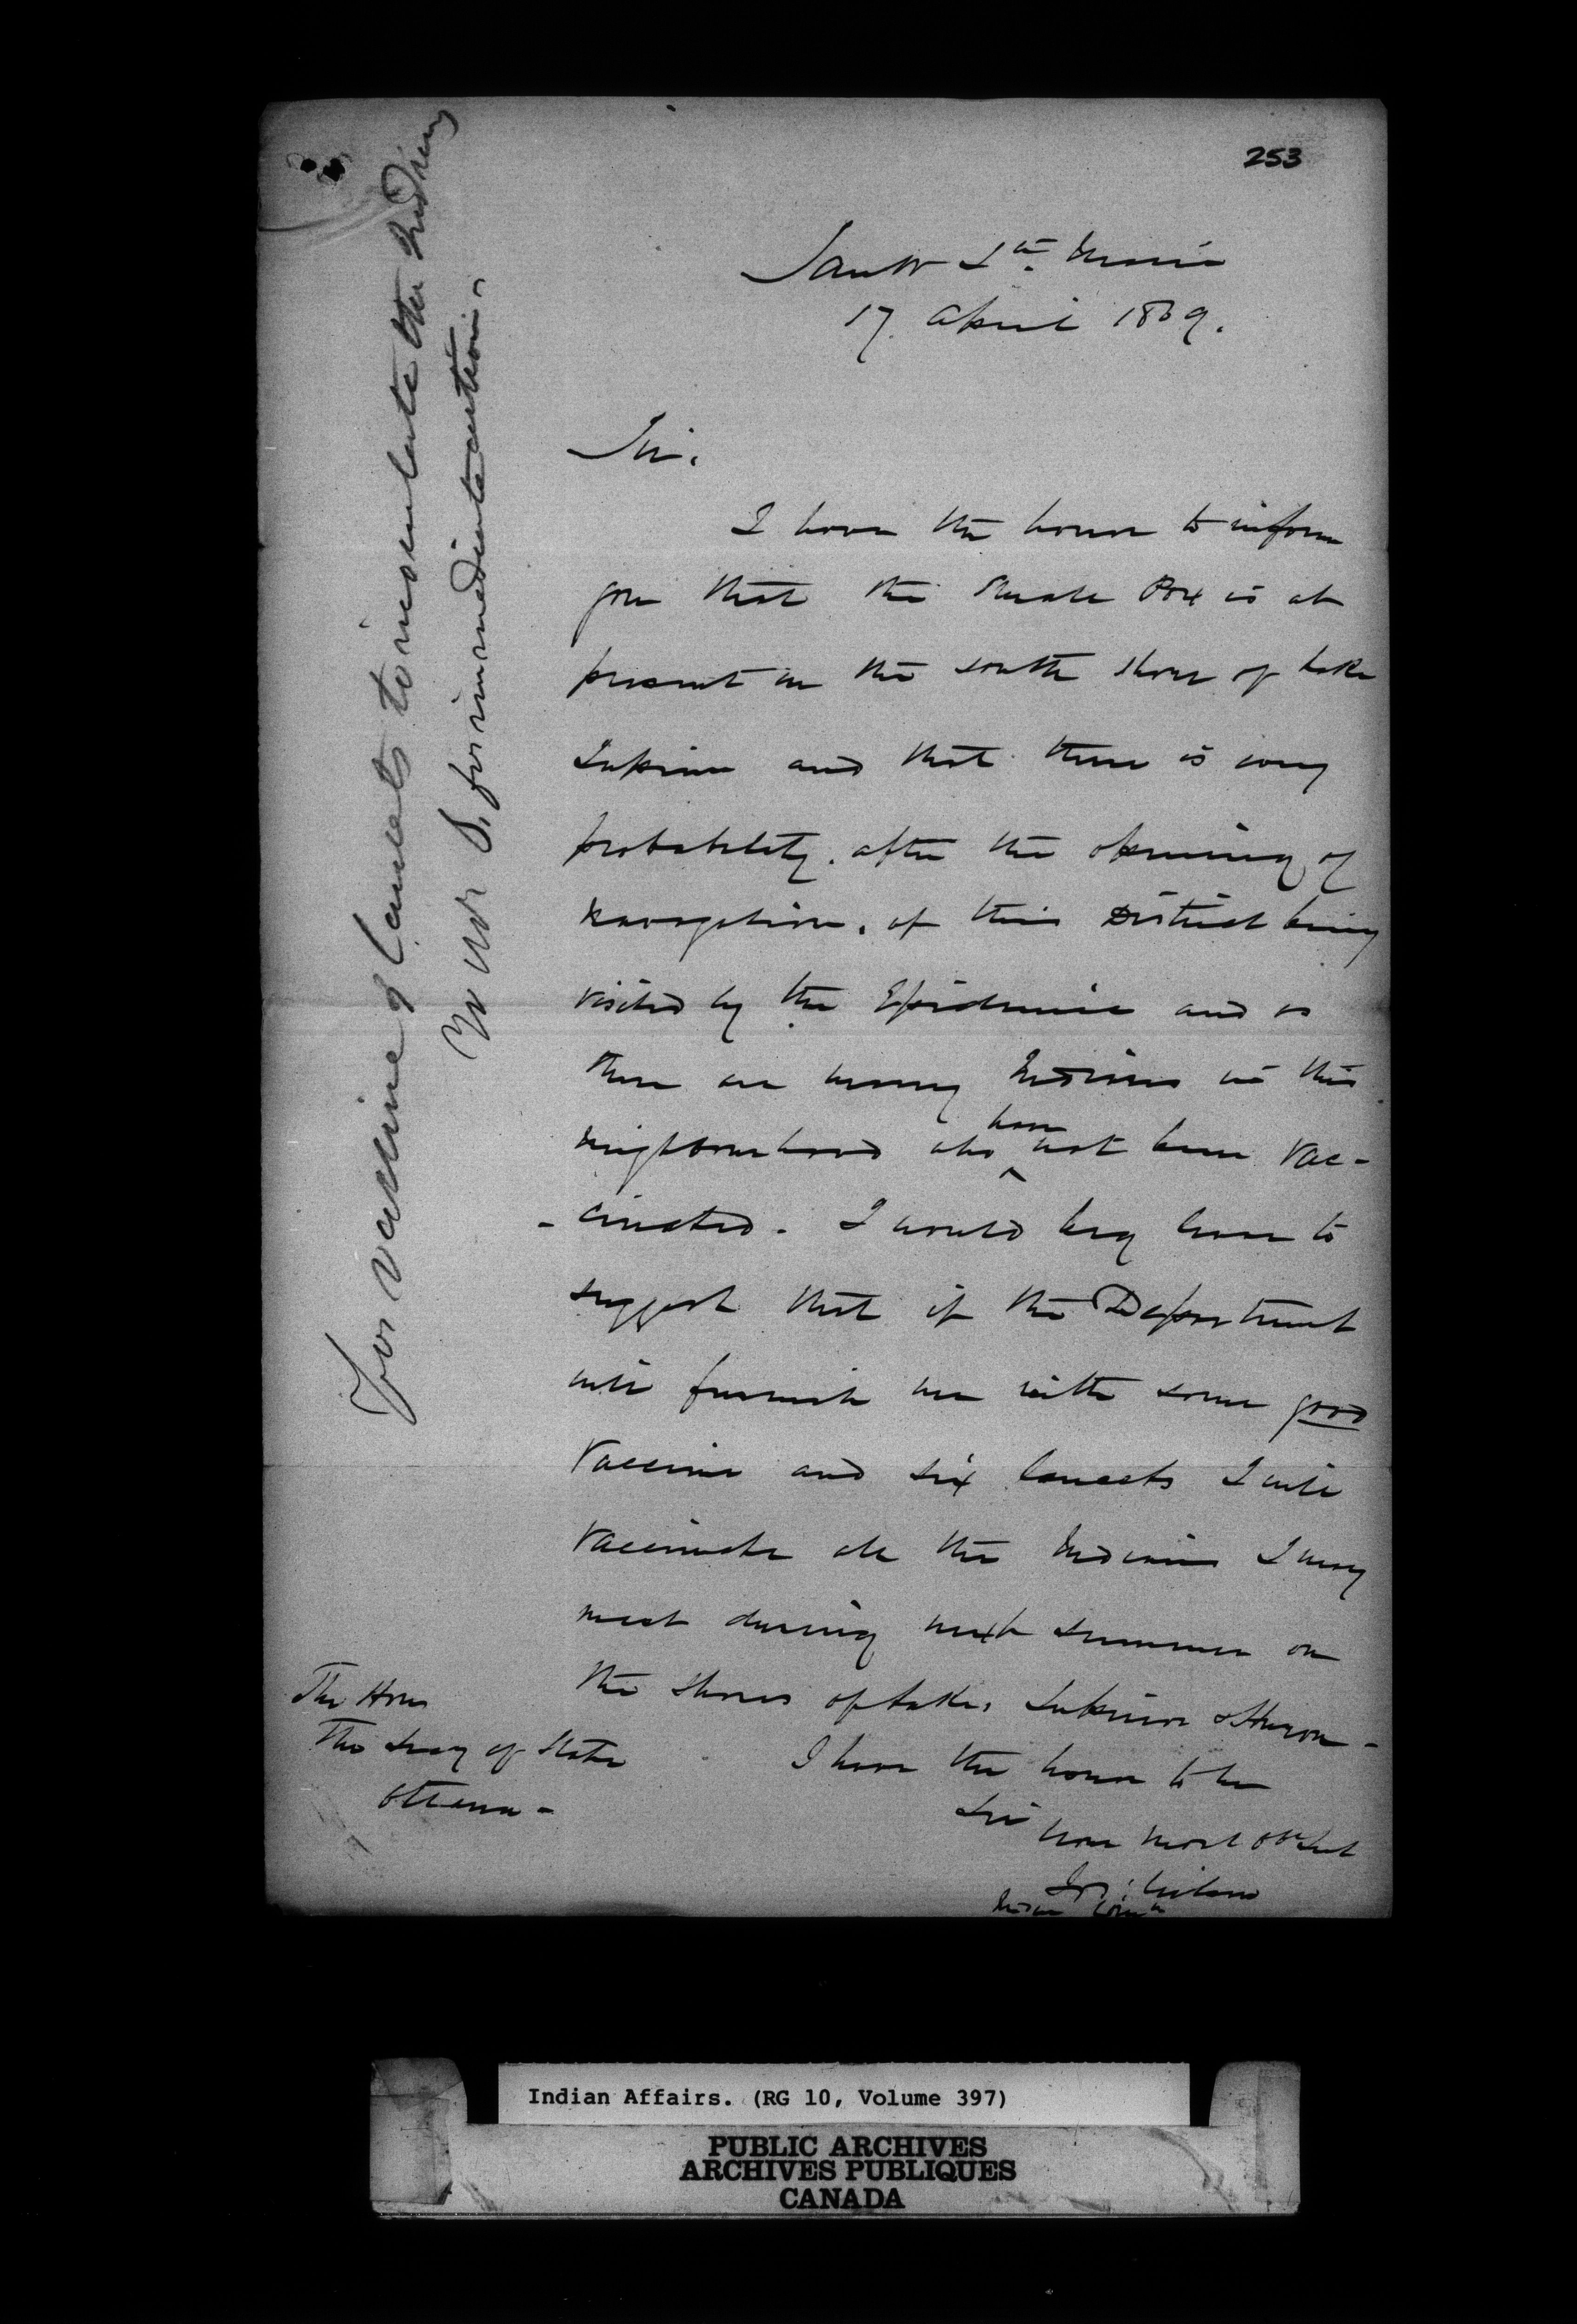 253
Sault Ste. Marie
17. April 1869.
Sir.
I have the honor to inform
you that the Small Pox is at
present on the south shore of Lake
Superior and that there is every
probability. after the opening of
navigation. of this District being
visited by the Epidemic and as
there are many Indians in this
neighbourhood who have not been vac-
- cinated. I would beg leave to
suggest that if the Department
will furnish me with some good
vaccine and six lancets I will
vaccinate all the Indians I may
meet during next summer on
the shores of Lakes Superior & Huron -
I have the honor to be
Sir
Your most obdt
Jos: Wilson
Indian Comr
The Hon
The Secy of State
Ottawa -
For vaccine & Lancets to inoculate the Indians
for immediate action.
Indian Affairs. (RG 10, Volume 397)
PUBLIC ARCHIVES
ARCHIVES PUBLIQUES
CANADA